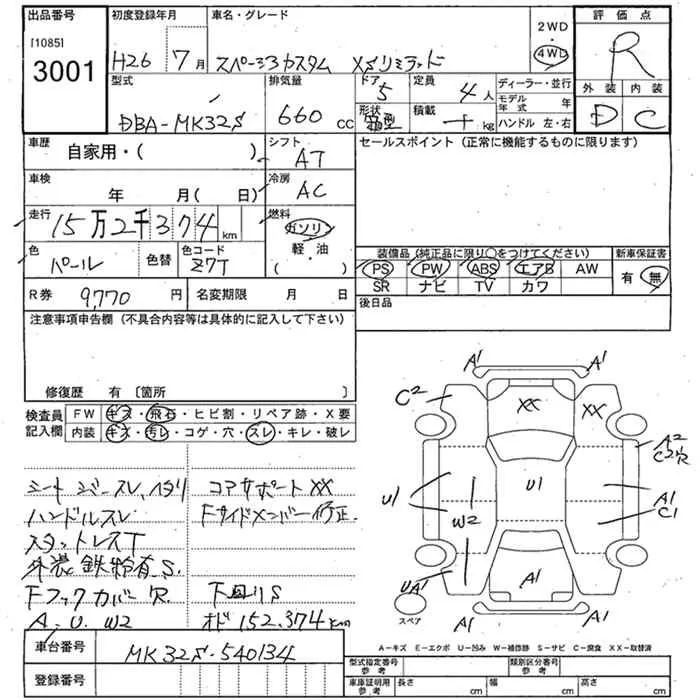 出品番号
[1085]
3001
初度登録年月
H26 7月
車名・グレード
スペーシアカスタム XSリミテッド
2WD
・
4WD
評価点
R
外装 内装
D C
型式
DBA-MK32S
排気量
660 CC
ドア
5
形状
箱型
定員
4人
積載
kg
ディーラー・並行
モデル年式 年
ハンドル 左・右
車歴
自家用・( )
シフト
AT
セールスポイント(正常に機能するものに限ります)
車検
年 月( 日)
冷房
AC
走行
15万2千374 km
燃料
ガソリン
軽・油
( )
色
パール
色替
色コード
Z7T
装備品(純正品に限り○をつけてください)
PS PW ABS エアB AW
SR ナビ TV カワ
新車保証書
有 無
R券 9,770 円
名変期限 月 日
後日品
注意事項申告欄(不具合内容等は具体的に記入して下さい)
修復歴 有〔箇所 〕
検査員記入欄
FW キズ・飛石・ヒビ割・リペア跡・X要
内装 キズ・汚レ・コゲ・穴・スレ・キレ・破レ
シートシワ・スレ,ヘタリ
ハンドルスレ
スタットレスT
外装 鉄粉有.S.
FフックカバーR.
A.U.W2
コアサポートXX
Fサイドメンバー修正.
下回りS
オド152.374km
A1
A1
C2
XX
XX
A2
U1
U1
W2
A1
C1
UA1
A1
A1
A1
スペア
A-キズ E-エクボ U-凹み W-補修跡 S-サビ C-腐食 XX-取替済
車台番号
MK32S-540134
登録番号
型式指定番号
参考
類別区分番号
参考
車庫証明用
参考
長さ cm
幅 cm
高さ cm